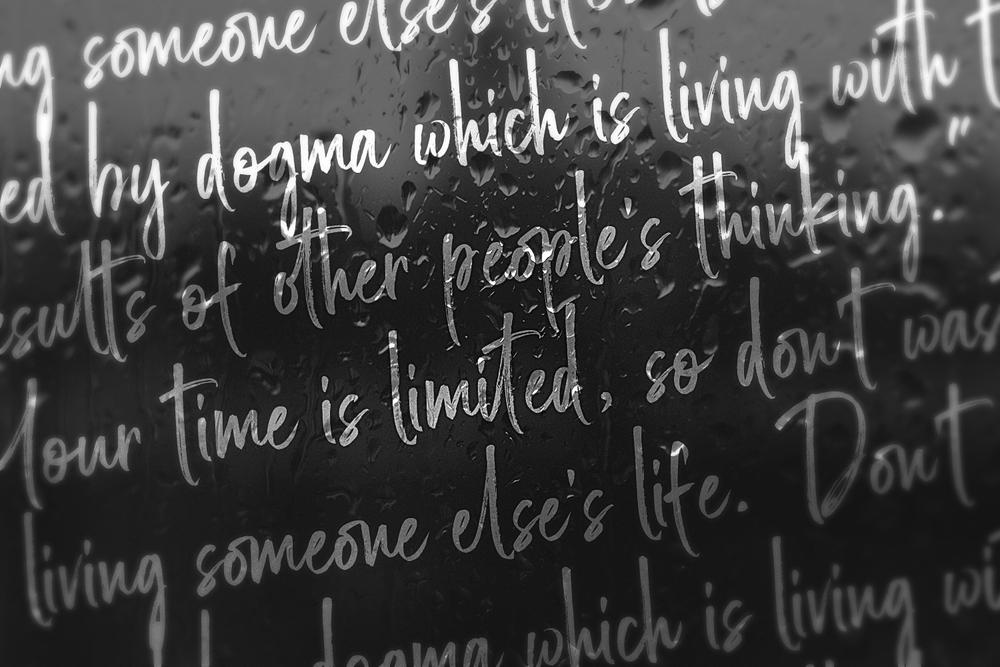 someone else's life.
by dogma which is living with
of other people's thinking."
Your time is limited, so don't
living someone else's life. Don't
dogma which is living